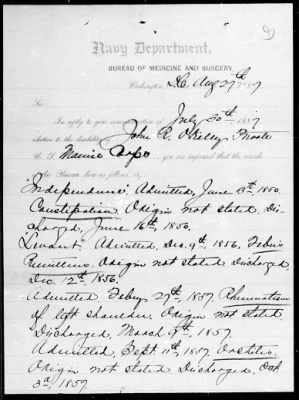 Navy Department,
BUREAU OF MEDICINE AND SURGERY,
Washington, D.C. Aug 27th 1887
Sir:
In reply to your communication of July 30th 1887
relative to the disability John R. O'Kelly Private
U. S. Marine Corps, you are informed that the records
this Bureau show as follows, viz:
Independence. Admitted, June 13th 1850.
Constipation. Origin not stated. Dis-
charged, June 16th 1850.
Levant. Admitted Dec. 9th, 1856. Febris
Remittens. Origin not stated. Discharged
Dec. 12th 1856.
Admitted Feby 27th 1857. Rheumatism
of left shoulder. Origin not stated.
Discharged. March 9th 1857.
Admitted, Sept. 11th 1857. Orchitis.
Origin not stated. Discharged. Oct
3d, 1857.